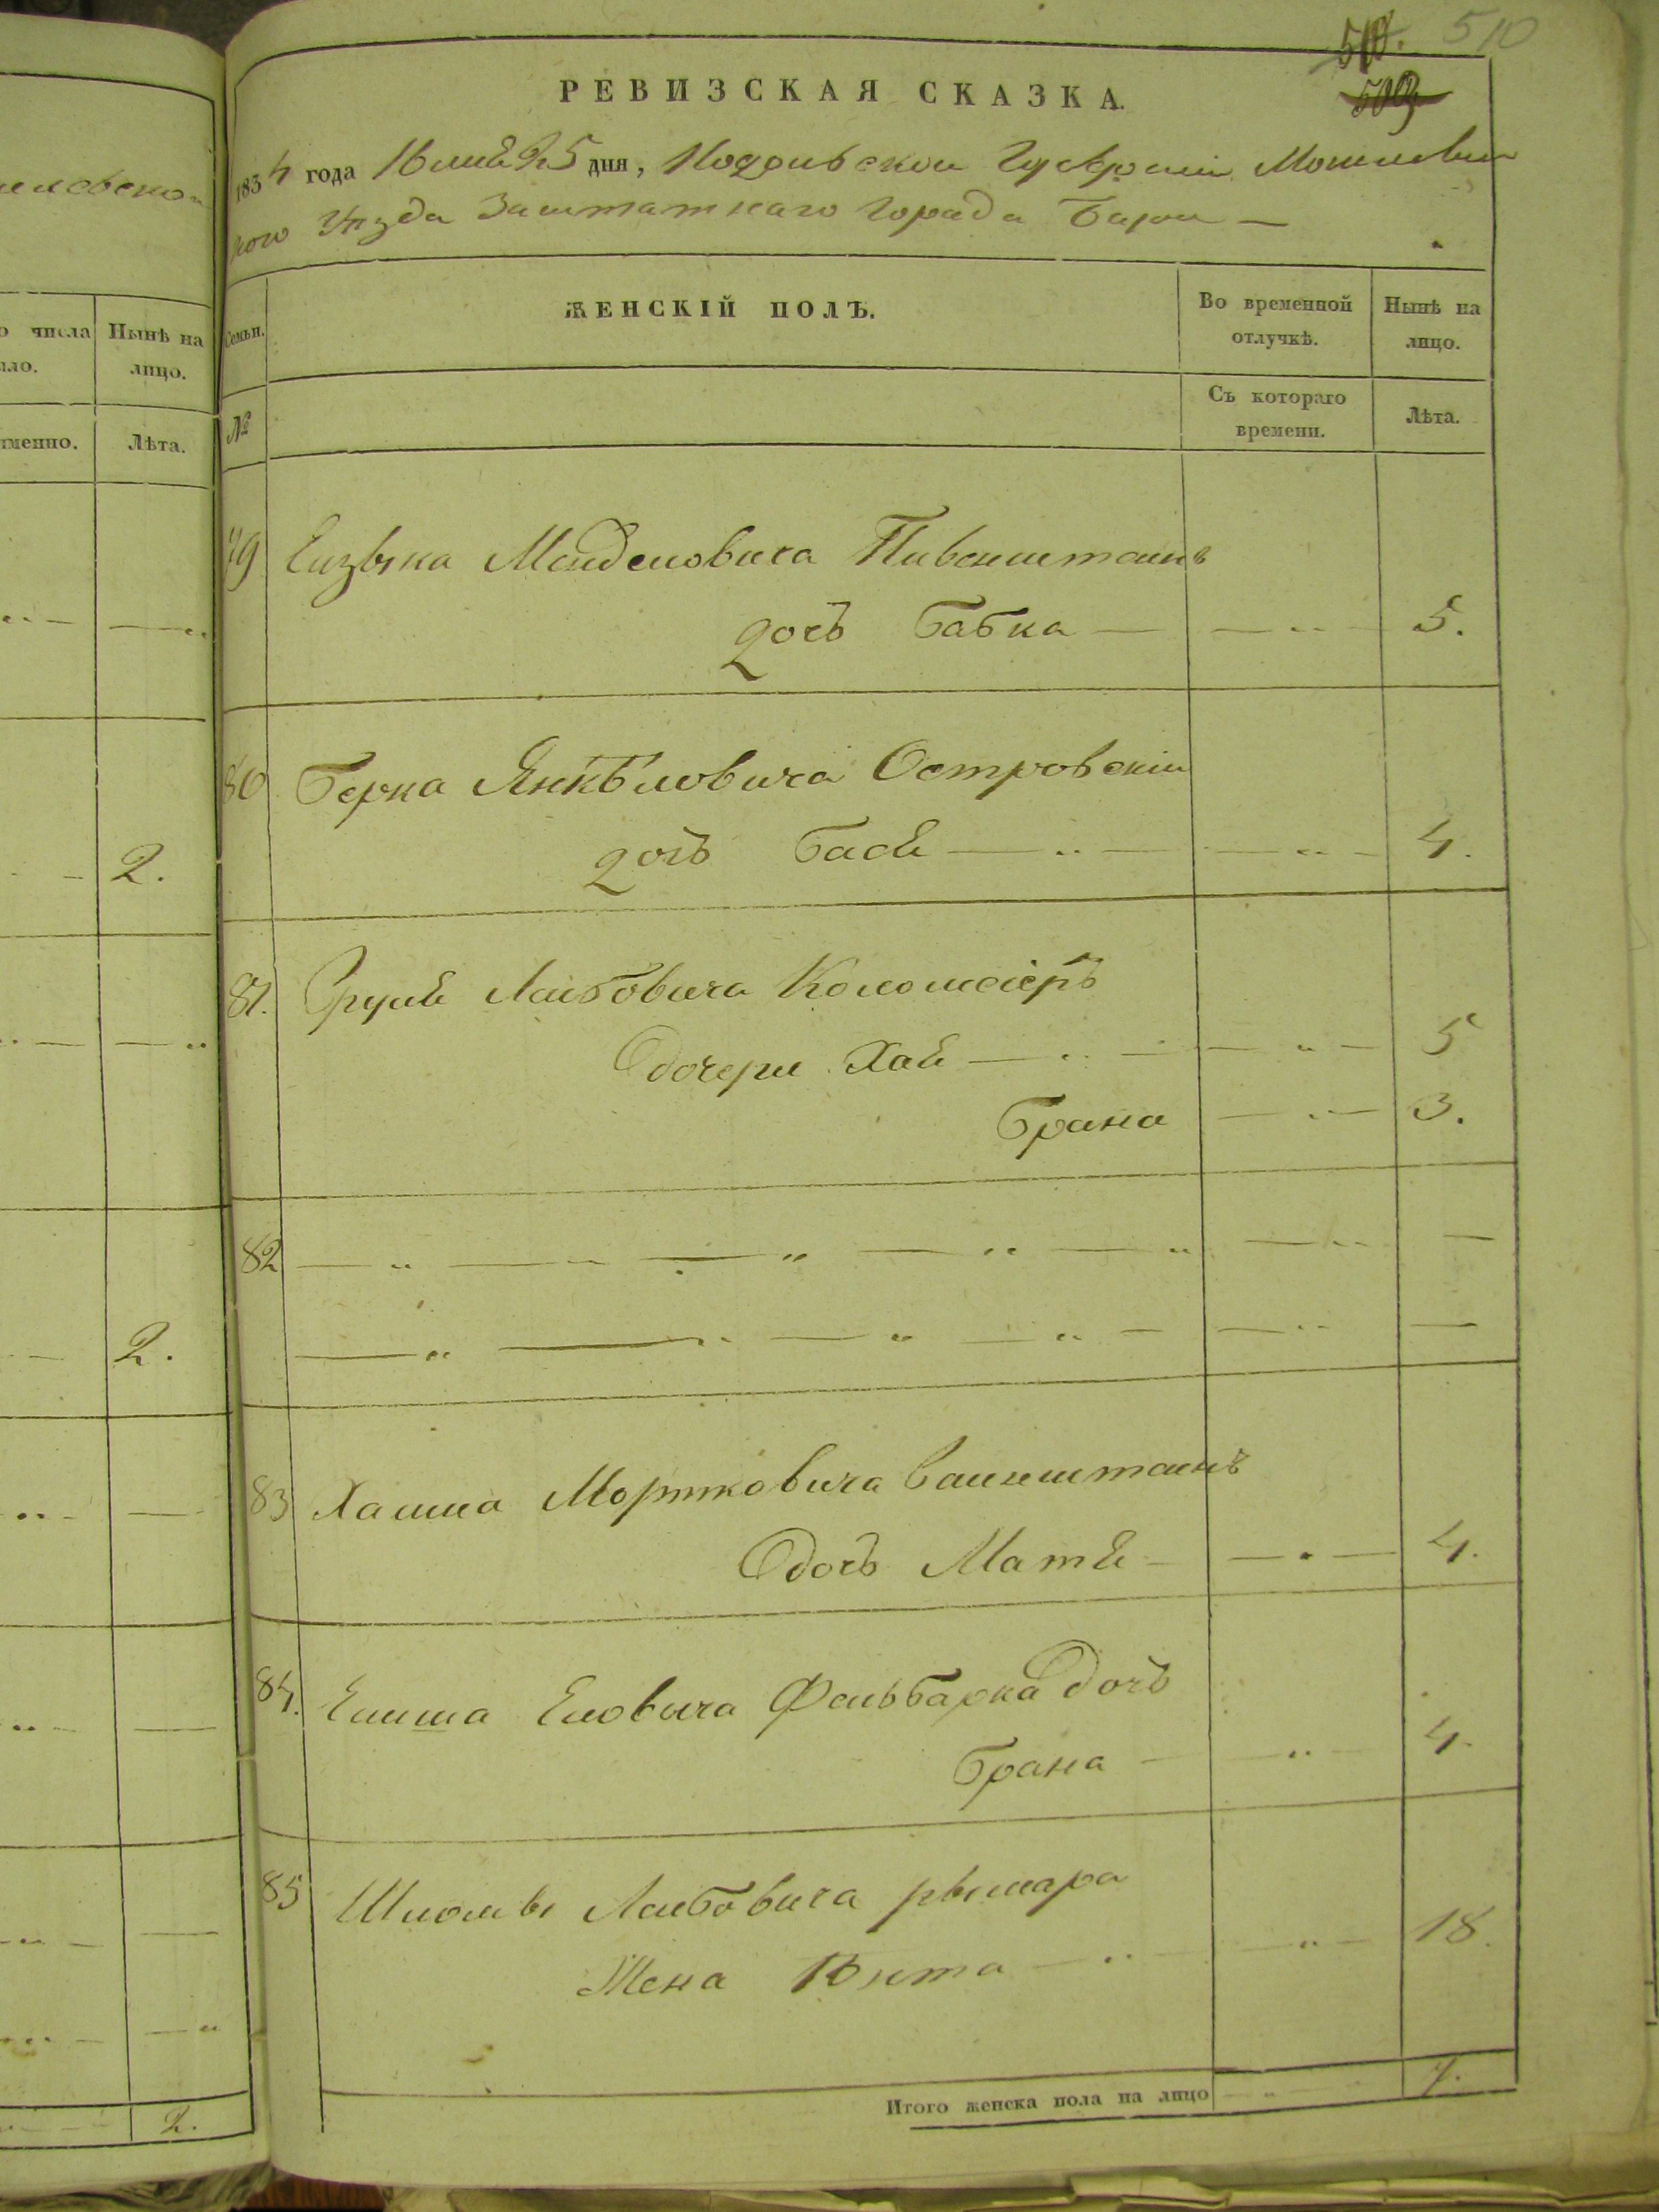 510. 510
509
РЕВИЗСКАЯ СКАЗКА.
1834 года Июля 25 дня, Подольской Губерніи Могилевс
кого Уѣзда Заштатнаго Города Бара —
Семьи. ЖЕНСКІЙ ПОЛЪ. Во временной отлучкѣ. Нынѣ на лицо.
№ Съ котораго времени. Лѣта.
числа Нынѣ на
лицо.
именно. Лѣта.
79 Мендел­овича
дочь Бабка — 5.
80 Берка Янкѣловича Островскій
дочь Бася — 4.
2.
81. Сруля Лейбовича Коломіеръ
Дочери Хая — 5
Брана — 3.
82
2.
83 Хаима Мортковича Ваинштаинъ
Дочь Матя — 4.
84. Елиша Еловича Фальбарка дочь
Брана — 4.
85 Шломы Лейбовича рымара
Жена Вита — 18.
Итого женска пола на лицо 7.
2.